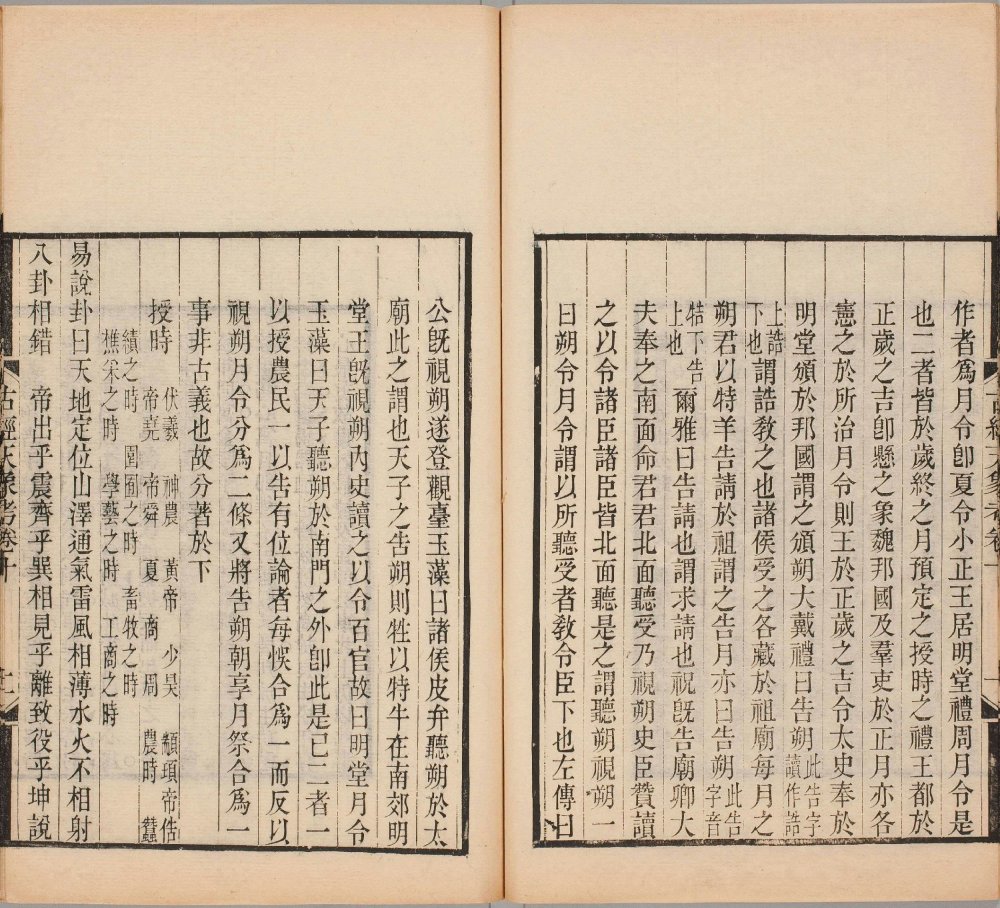 作者爲月令卽夏令小正王居明堂禮周月令是
也二者皆於歲終之月預定之授時之禮王都於
正歲之吉卽懸之象魏邦國及羣吏於正月亦各
憲之於所治月令則王於正歲之吉令太史奉於
明堂頒於邦國謂之頒朔大戴禮曰告朔此告字讀作誥
上誥下也謂誥敎之也諸侯受之各藏於祖廟每月之
朔君以特羊告請於祖謂之告月亦曰告朔此告字音
牿下告上也爾雅曰告請也謂求請也祝旣告廟卿大
夫奉之南面命君君北面聽受乃視朔史臣贊讀
之以令諸臣諸臣皆北面聽是之謂聽朔視朔一
曰朔令月令謂以所聽受者敎令臣下也左傳曰
公旣視朔遂登觀臺玉藻曰諸侯皮弁聽朔於太
廟此之謂也天子之告朔則牲以特牛在南郊明
堂王旣視朔內史讀之以令百官故曰明堂月令
玉藻曰天子聽朔於南門之外卽此是已二者一
以授農民一以告有位論者每悞合爲一而反以
視朔月令分爲二條又將告朔朝享月祭合爲一
事非古義也故分著於下
授時 伏羲 神農 黃帝 少昊 顓頊 帝俈
帝堯 帝舜 夏 商 周 農時 蠶
績之時 園圃之時 畜牧之時
樵宋之時 學藝之時 工商之時
易說卦曰天地定位山澤通氣雷風相薄水火不相射
八卦相錯 帝出乎震齊乎巽相見乎離致役乎坤說
古經天象考卷十 十一